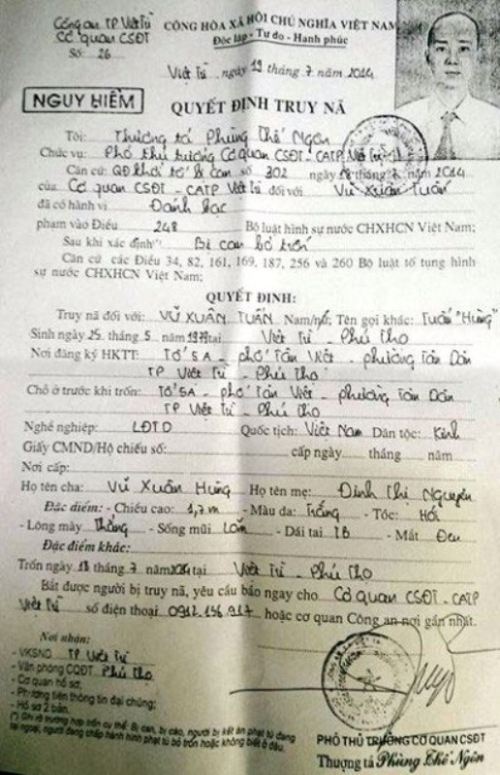 Công an TP Việt Trì
Cơ quan CSĐT
Số: 26
CỘNG HÒA XÃ HỘI CHỦ NGHĨA VIỆT NAM
Độc lập - Tự do - Hạnh phúc
Việt Trì ngày 19 tháng 7 năm 2014
NGUY HIỂM
QUYẾT ĐỊNH TRUY NÃ
Tôi: Thượng tá Phùng Thế Ngôn
Chức vụ: Phó thủ trưởng Cơ quan CSĐT - CATP Việt Trì
Căn cứ: QĐ khởi tố bị can số 302 ngày 18 tháng 7 năm 2014
của Cơ quan CSĐT - CATP Việt Trì đối với Vũ Xuân Tuấn
đã có hành vi Đánh bạc
phạm vào Điều 248 Bộ luật hình sự nước CHXHCN Việt Nam;
Sau khi xác định Bị can bỏ trốn
Căn cứ các Điều 34, 82, 161, 169, 187, 256 và 260 Bộ luật tố tụng hình
sự nước CHXHCN Việt Nam;
QUYẾT ĐỊNH:
Truy nã đối với: VŨ XUÂN TUẤN Nam/nữ; Tên gọi khác: Tuấn "Hưng"
Sinh ngày 25 tháng 5 năm tại Việt Trì - Phú Thọ
Nơi đăng ký HKTT: Tổ 5A - phố Tân Việt - phường Tân Dân
TP Việt Trì - Phú Thọ
Chỗ ở trước khi trốn: Tổ 5A - phố Tân Việt - phường Tân Dân
TP Việt Trì - Phú Thọ
Nghề nghiệp: LĐTD Quốc tịch: Việt Nam Dân tộc: Kinh
Giấy CMND/Hộ chiếu số: cấp ngày tháng năm
Nơi cấp:
Họ tên cha: Vũ Xuân Hưng Họ tên mẹ: Đinh Thị Nguyên
Đặc điểm: - Chiều cao: 1,7 m - Màu da: Trắng - Tóc: Hói
- Lông mày Thẳng - Sống mũi Lõm - Dái tai TB - Mắt Đen
Đặc điểm khác:
Trốn ngày 18 tháng 7 năm 2014 tại Việt Trì - Phú Thọ
Bắt được người bị truy nã, yêu cầu báo ngay cho Cơ quan CSĐT - CATP
Việt Trì số điện thoại 0912.156.917 hoặc cơ quan Công an nơi gần nhất.
Nơi nhận:
- VKSND TP Việt Trì
- Văn phòng CQĐT Phú Thọ
- Cơ quan hồ sơ;
- Phương tiện thông tin đại chúng;
- Hồ sơ 2 bản.
(*) Ghi rõ trường hợp cụ thể: Bị can, bị cáo, người bị kết án phạt tù đang
tại ngoại, người đang chấp hành hình phạt tù bỏ trốn hoặc không biết ở đâu.
PHÓ THỦ TRƯỞNG CƠ QUAN CSĐT
Thượng tá Phùng Thế Ngôn